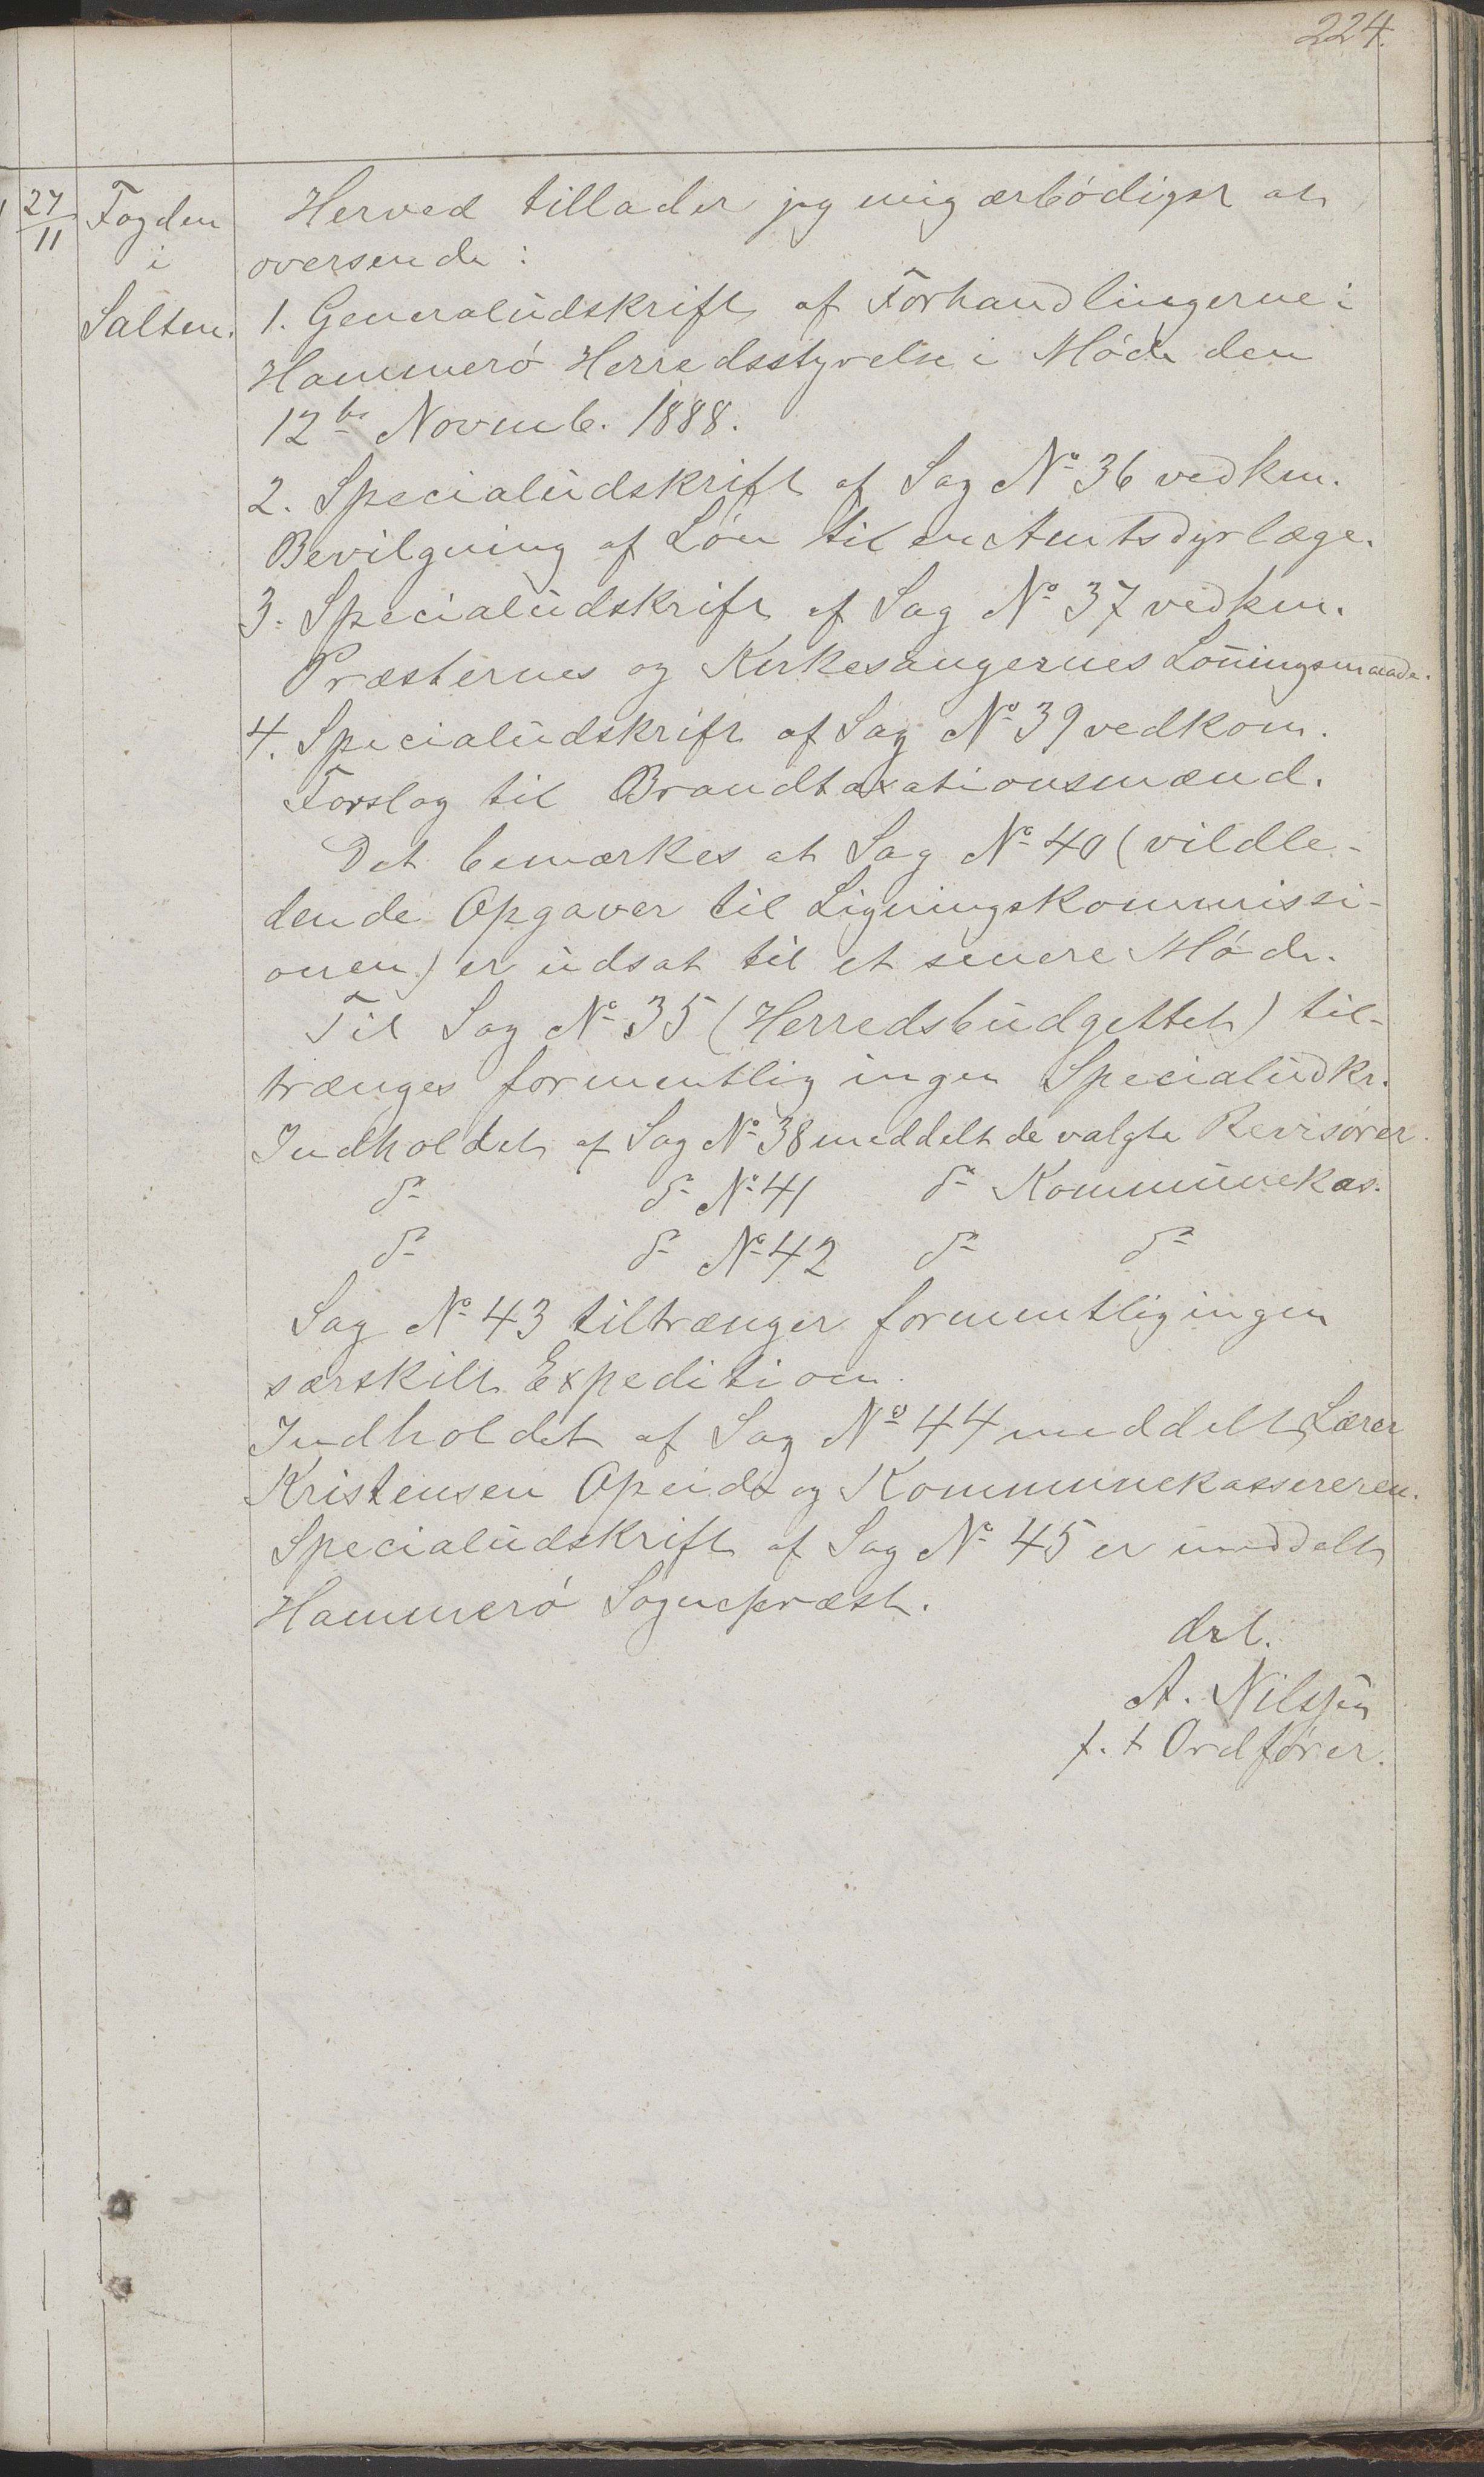 224.
27/11 Fogden
i
Salten.
Herved tillader jeg mig ærbødigst at
oversende:
1. Generaludskrift af Forhandlingerne i
Hammerø Herredsstyrelse i Møde den
12te Novemb. 1888.
2. Specialudskrift af Sag No 36 vedkm.
Bevilgning af Løn til en Amtsdyrlæge.
3. Specialudskrift af Sag No 37 vedkm.
Præsternes og Kirkesangernes Lønningsmaade.
4. Specialudskrift af Sag No 39 vedkom.
Forslag til Brandtaxationsmænd.
Det bemærkes at Sag No 40 (vildle-
dende Opgaver til Ligningskommissi-
onen) er udsat til et senere Møde.
Til Sag No 35 (Herredsbudgettet) til-
trænges formentlig ingen Specialudkr.
Indholdet af Sag No 38 meddelt de valgte Revisorer.
do do No 41 do Kommunekas.
do do No 42 do do
Sag No 43 tiltrænger formentlig ingen
særskilt Expedition.
Indholdet af Sag No 44 meddelt Lærer
Kristensen Opeide og Kommunekassereren.
Specialudskrift af Sag No 45 er meddelt
Hammerø Sognepræst.
drt.
A. Nilssen
f. t Ordfører.